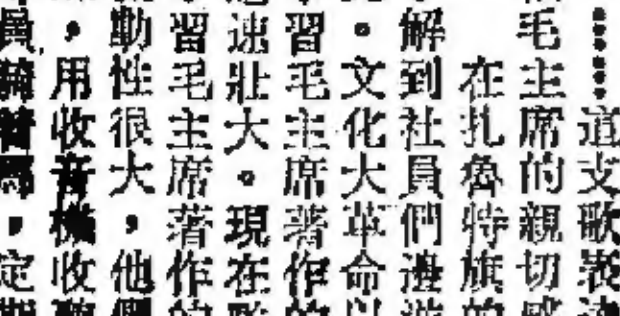 ……這支歌表達
毛主席的親切感
在扎魯特旗的
解到社員們邊
。文化大革命以
習毛主席著作的
速壯大。現在隊
習毛主席著作的
動性很大，他們
，用收音機收聽
員騎著馬，定期